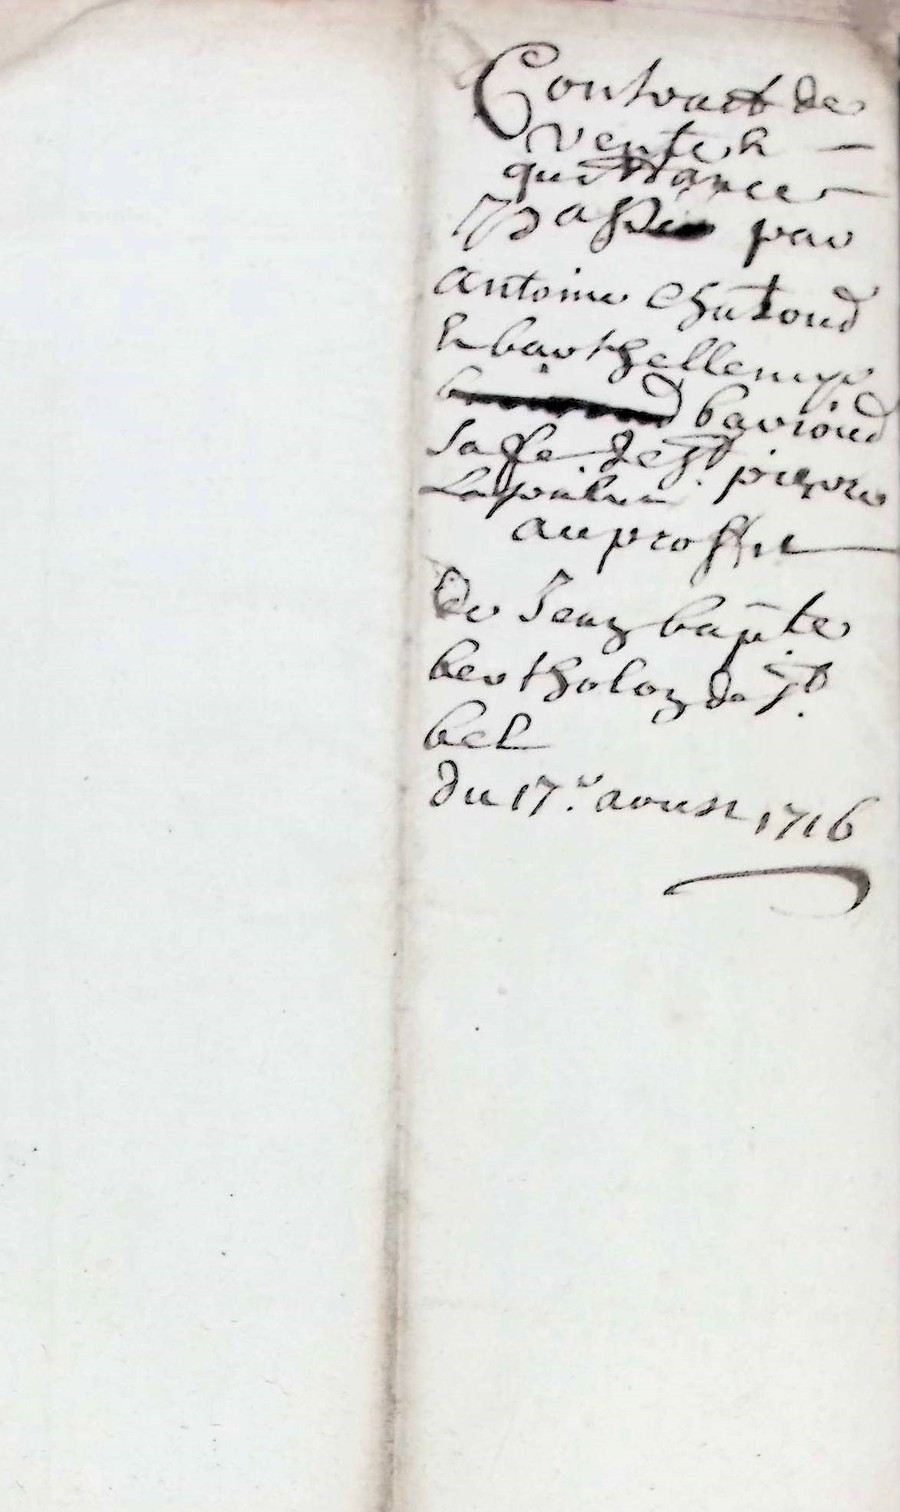 Contract de
vente &
quittance
passé par
antoine Chatoud
& barthellemye
bavioud
sa fe de st pierre
lapalud
au proffit
de Jean bapte
bertholon de st
bel
du 17e aoust 1716